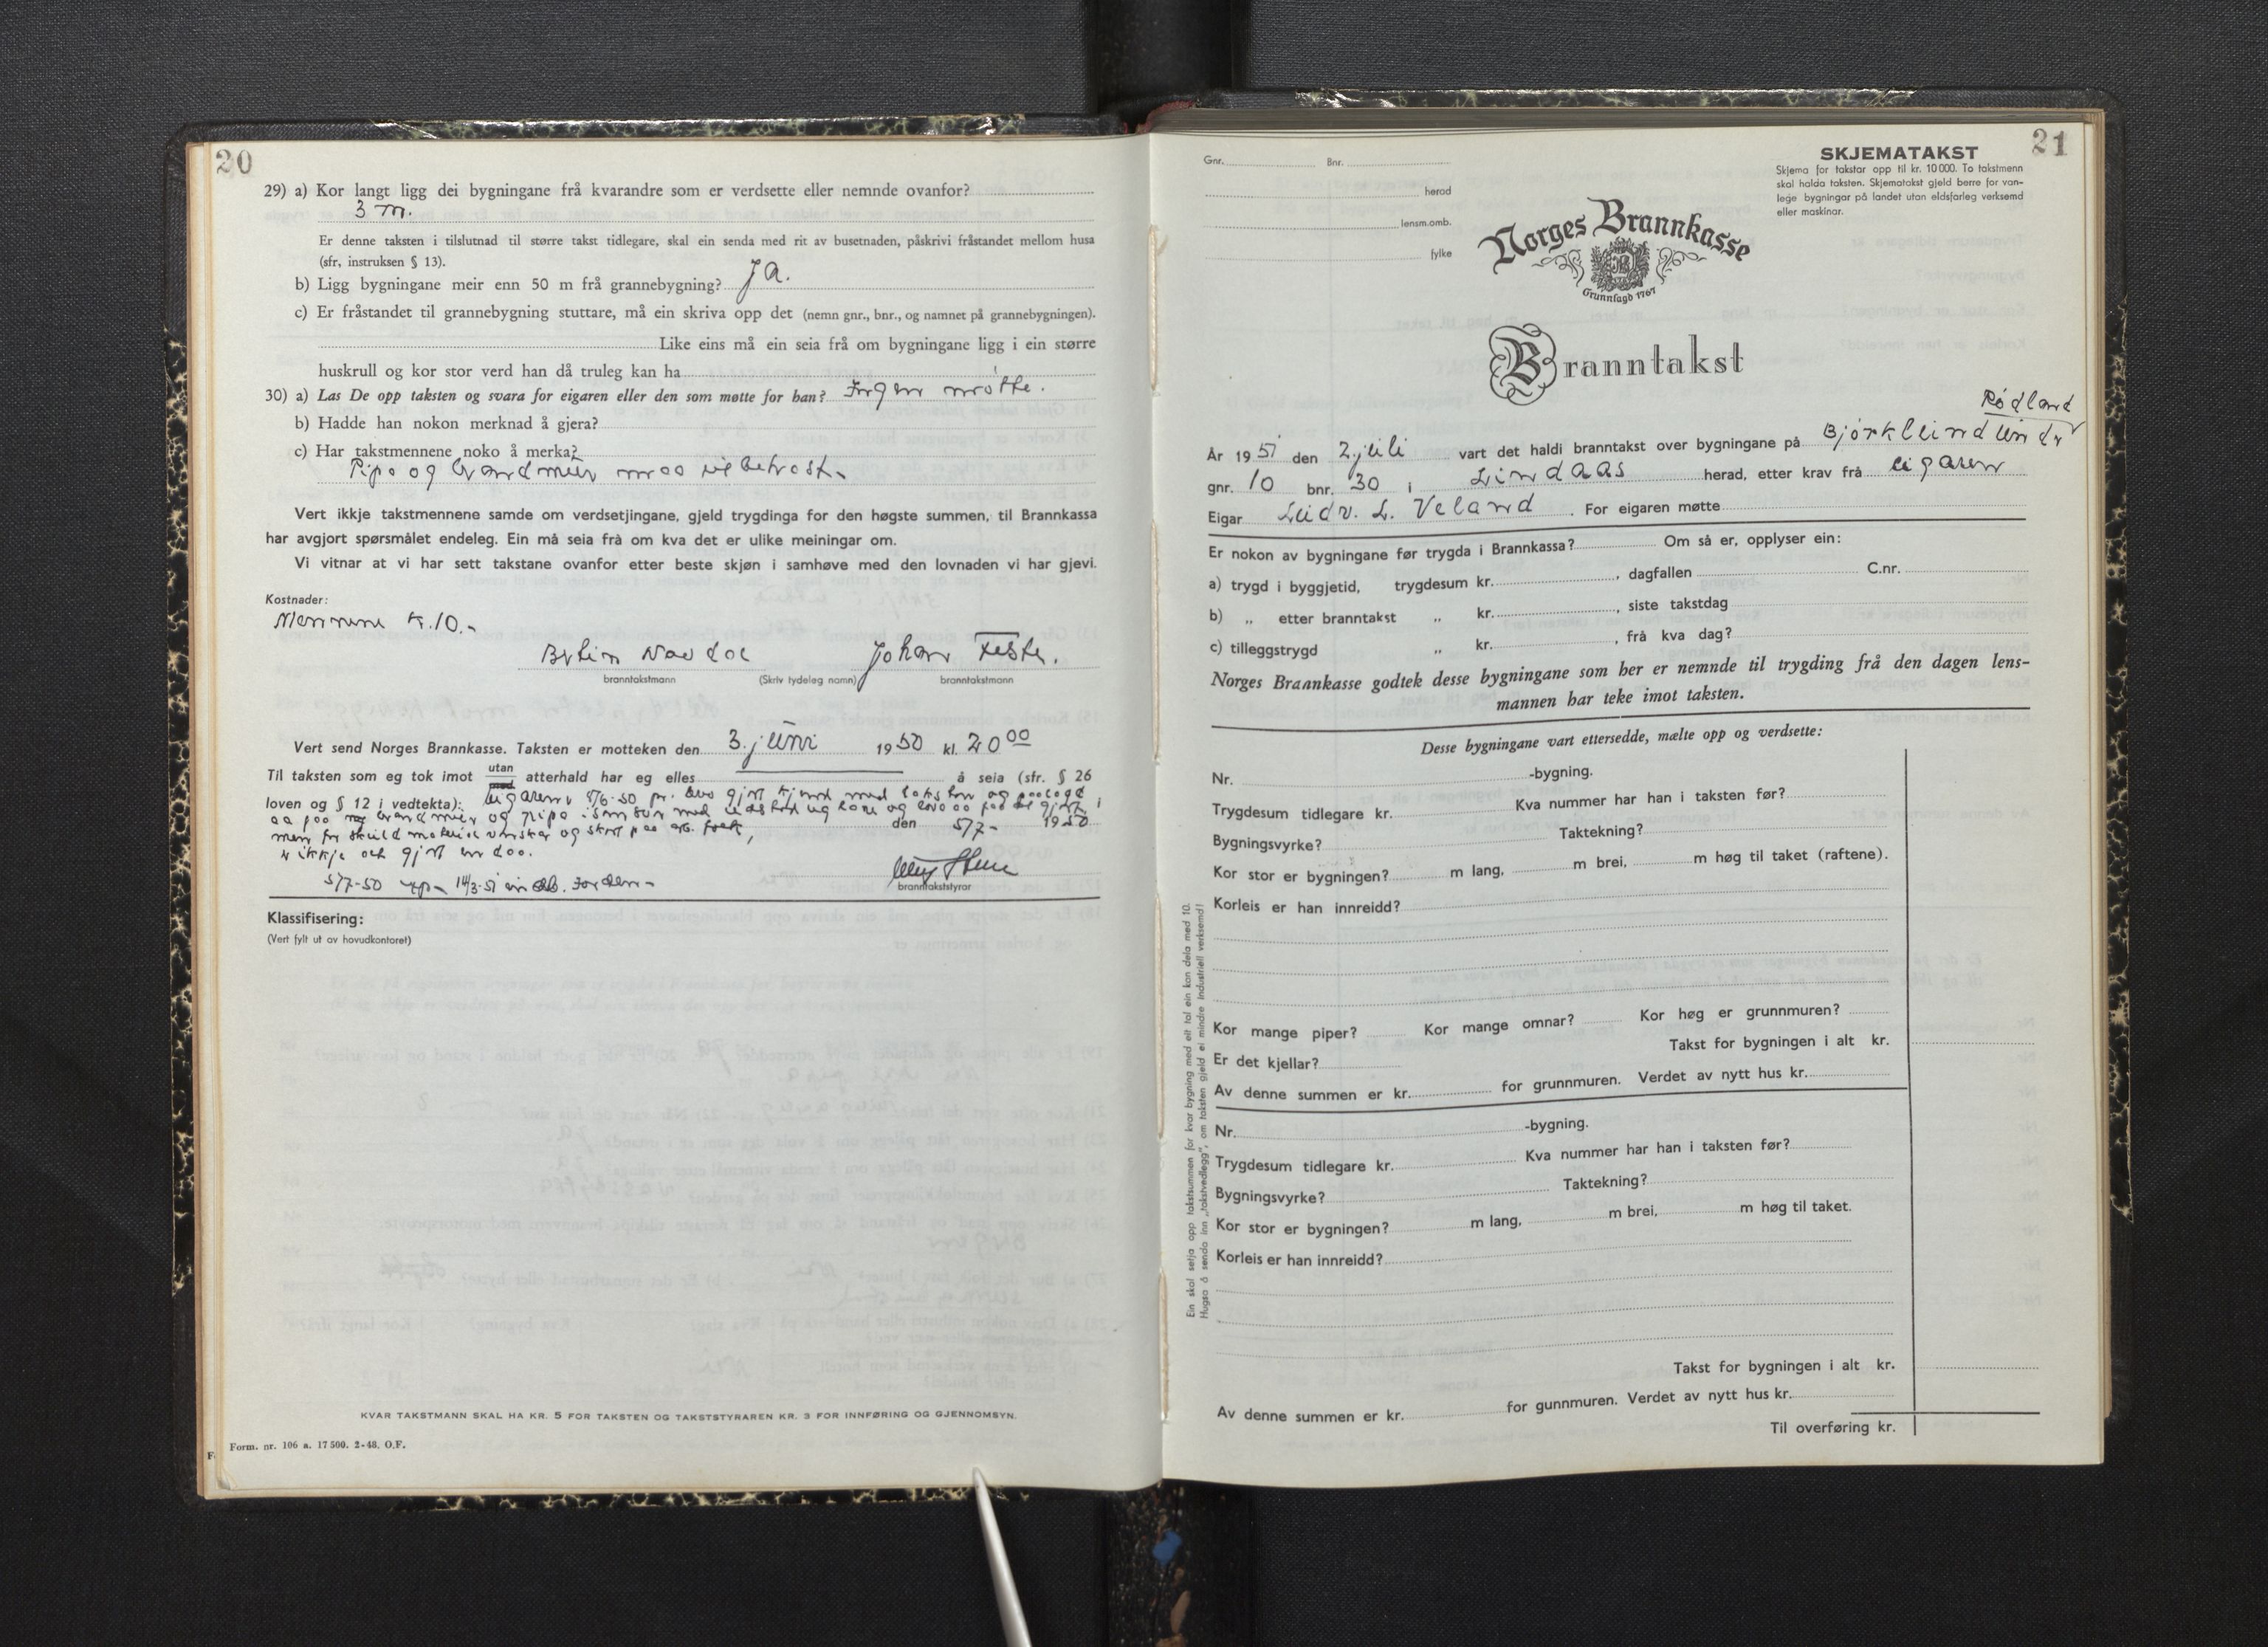 20
29) a) Kor langt ligg dei bygningane frå kvarandre som er verdsette eller nemnde ovanfor?
3 m.
Er denne taksten i tilslutnad til større takst tidlegare, skal ein senda med rit av busetnaden, påskrivi fråstandet mellom husa
(sfr, instruksen § 13).
b) Ligg bygningane meir enn 50 m frå grannebygning? Ja.
c) Er fråstandet til grannebygning stuttare, må ein skriva opp det (nemn gnr., bnr., og namnet på grannebygningen).
Like eins må ein seia frå om bygningane ligg i ein større
huskrull og kor stor verd han då truleg kan ha
30) a) Las De opp taksten og svara for eigaren eller den som møtte for han? Ingen møtte.
b) Hadde han nokon merknad å gjera?
c) Har takstmennene noko å merka?
Pipa og brandmur maa utbetrast.
Vert ikkje takstmennene samde om verdsetjingane, gjeld trygdinga for den høgste summen, til Brannkassa
har avgjort spørsmålet endeleg. Ein må seia frå om kva det er ulike meiningar om.
Vi vitnar at vi har sett takstane ovanfor etter beste skjøn i samhøve med den lovnaden vi har gjevi.
Kostnader:
Mennene k. 10.-
Johan Feste.
branntakstmann (Skriv tydeleg namn) branntakstmann
Vert send Norges Brannkasse. Taksten er motteken den 3. juni 1950 kl. 20 00
Til taksten som eg tok imot utan atterhald har eg elles å seia (sfr. § 26
loven og § 12 i vedtekta): Eigaren 5/6-50 pr. brev gjort kjend med taksten og paalagd
aa faa brandmur og pipa i
men for og paa
den 5/7- 1950
ikkje gjort
5/7-50 14/3-51
branntakststyrar
Klassifisering:
(Vert fylt ut av hovudkontoret)
KVAR TAKSTMANN SKAL HA KR. 5 FOR TAKSTEN OG TAKSTSTYRAREN KR. 3 FOR INNFØRING OG GJENNOMSYN.
Form. nr. 106 a. 17 500. 2-48. O.F.
21
Gnr. Bnr.
herad
lensm.omb.
fylke
SKJEMATAKST
Skjema for takstar opp til kr. 10 000. To takstmenn
skal halda taksten. Skjematakst gjeld berre for van-
lege bygningar på landet utan eldsfarleg verksemd
eller maskinar.
Norges Brannkasse
Grunnlagd 1767
Branntakst
Rødland
År 1951 den 2. juli vart det haldi branntakst over bygningane på Bjørklund under
gnr. 10 bnr. 30 i Lindaas herad, etter krav frå eigaren
Eigar Leidv. L. Veland . For eigaren møtte
Er nokon av bygningane før trygda i Brannkassa? Om så er, opplyser ein:
a) trygd i byggjetid, trygdesum kr. , dagfallen C.nr.
b) „ etter branntakst „ kr. , siste takstdag
c) tilleggstrygd „ kr. , frå kva dag?
Norges Brannkasse godtek desse bygningane som her er nemnde til trygding frå den dagen lens-
mannen har teke imot taksten.
Desse bygningane vart ettersedde, mælte opp og verdsette:
Nr. -bygning.
Trygdesum tidlegare kr. Kva nummer har han i taksten før?
Bygningsvyrke? Taktekning?
Kor stor er bygningen? m lang, m brei, m høg til taket (raftene).
Korleis er han innreidd?
Kor mange piper? Kor mange omnar? Kor høg er grunnmuren?
Er det kjellar? Takst for bygningen i alt kr.
Av denne summen er kr. for grunnmuren. Verdet av nytt hus kr.
Nr. -bygning.
Trygdesum tidlegare kr. Kva nummer har han i taksten før?
Bygningsvyrke? Taktekning?
Kor stor er bygningen? m lang, m brei, m høg til taket.
Korleis er han innreidd?
Takst for bygningen i alt kr.
Av denne summen er kr. for gunnmuren. Verdet av nytt hus kr.
Til overføring kr.
Ein skal setja opp takstsummen for kvar bygning med eit tal ein kan dela med 10.
Hugsa å senda inn „takstvedlegg", om taksten gjeld ei mindre industriell verksemd!